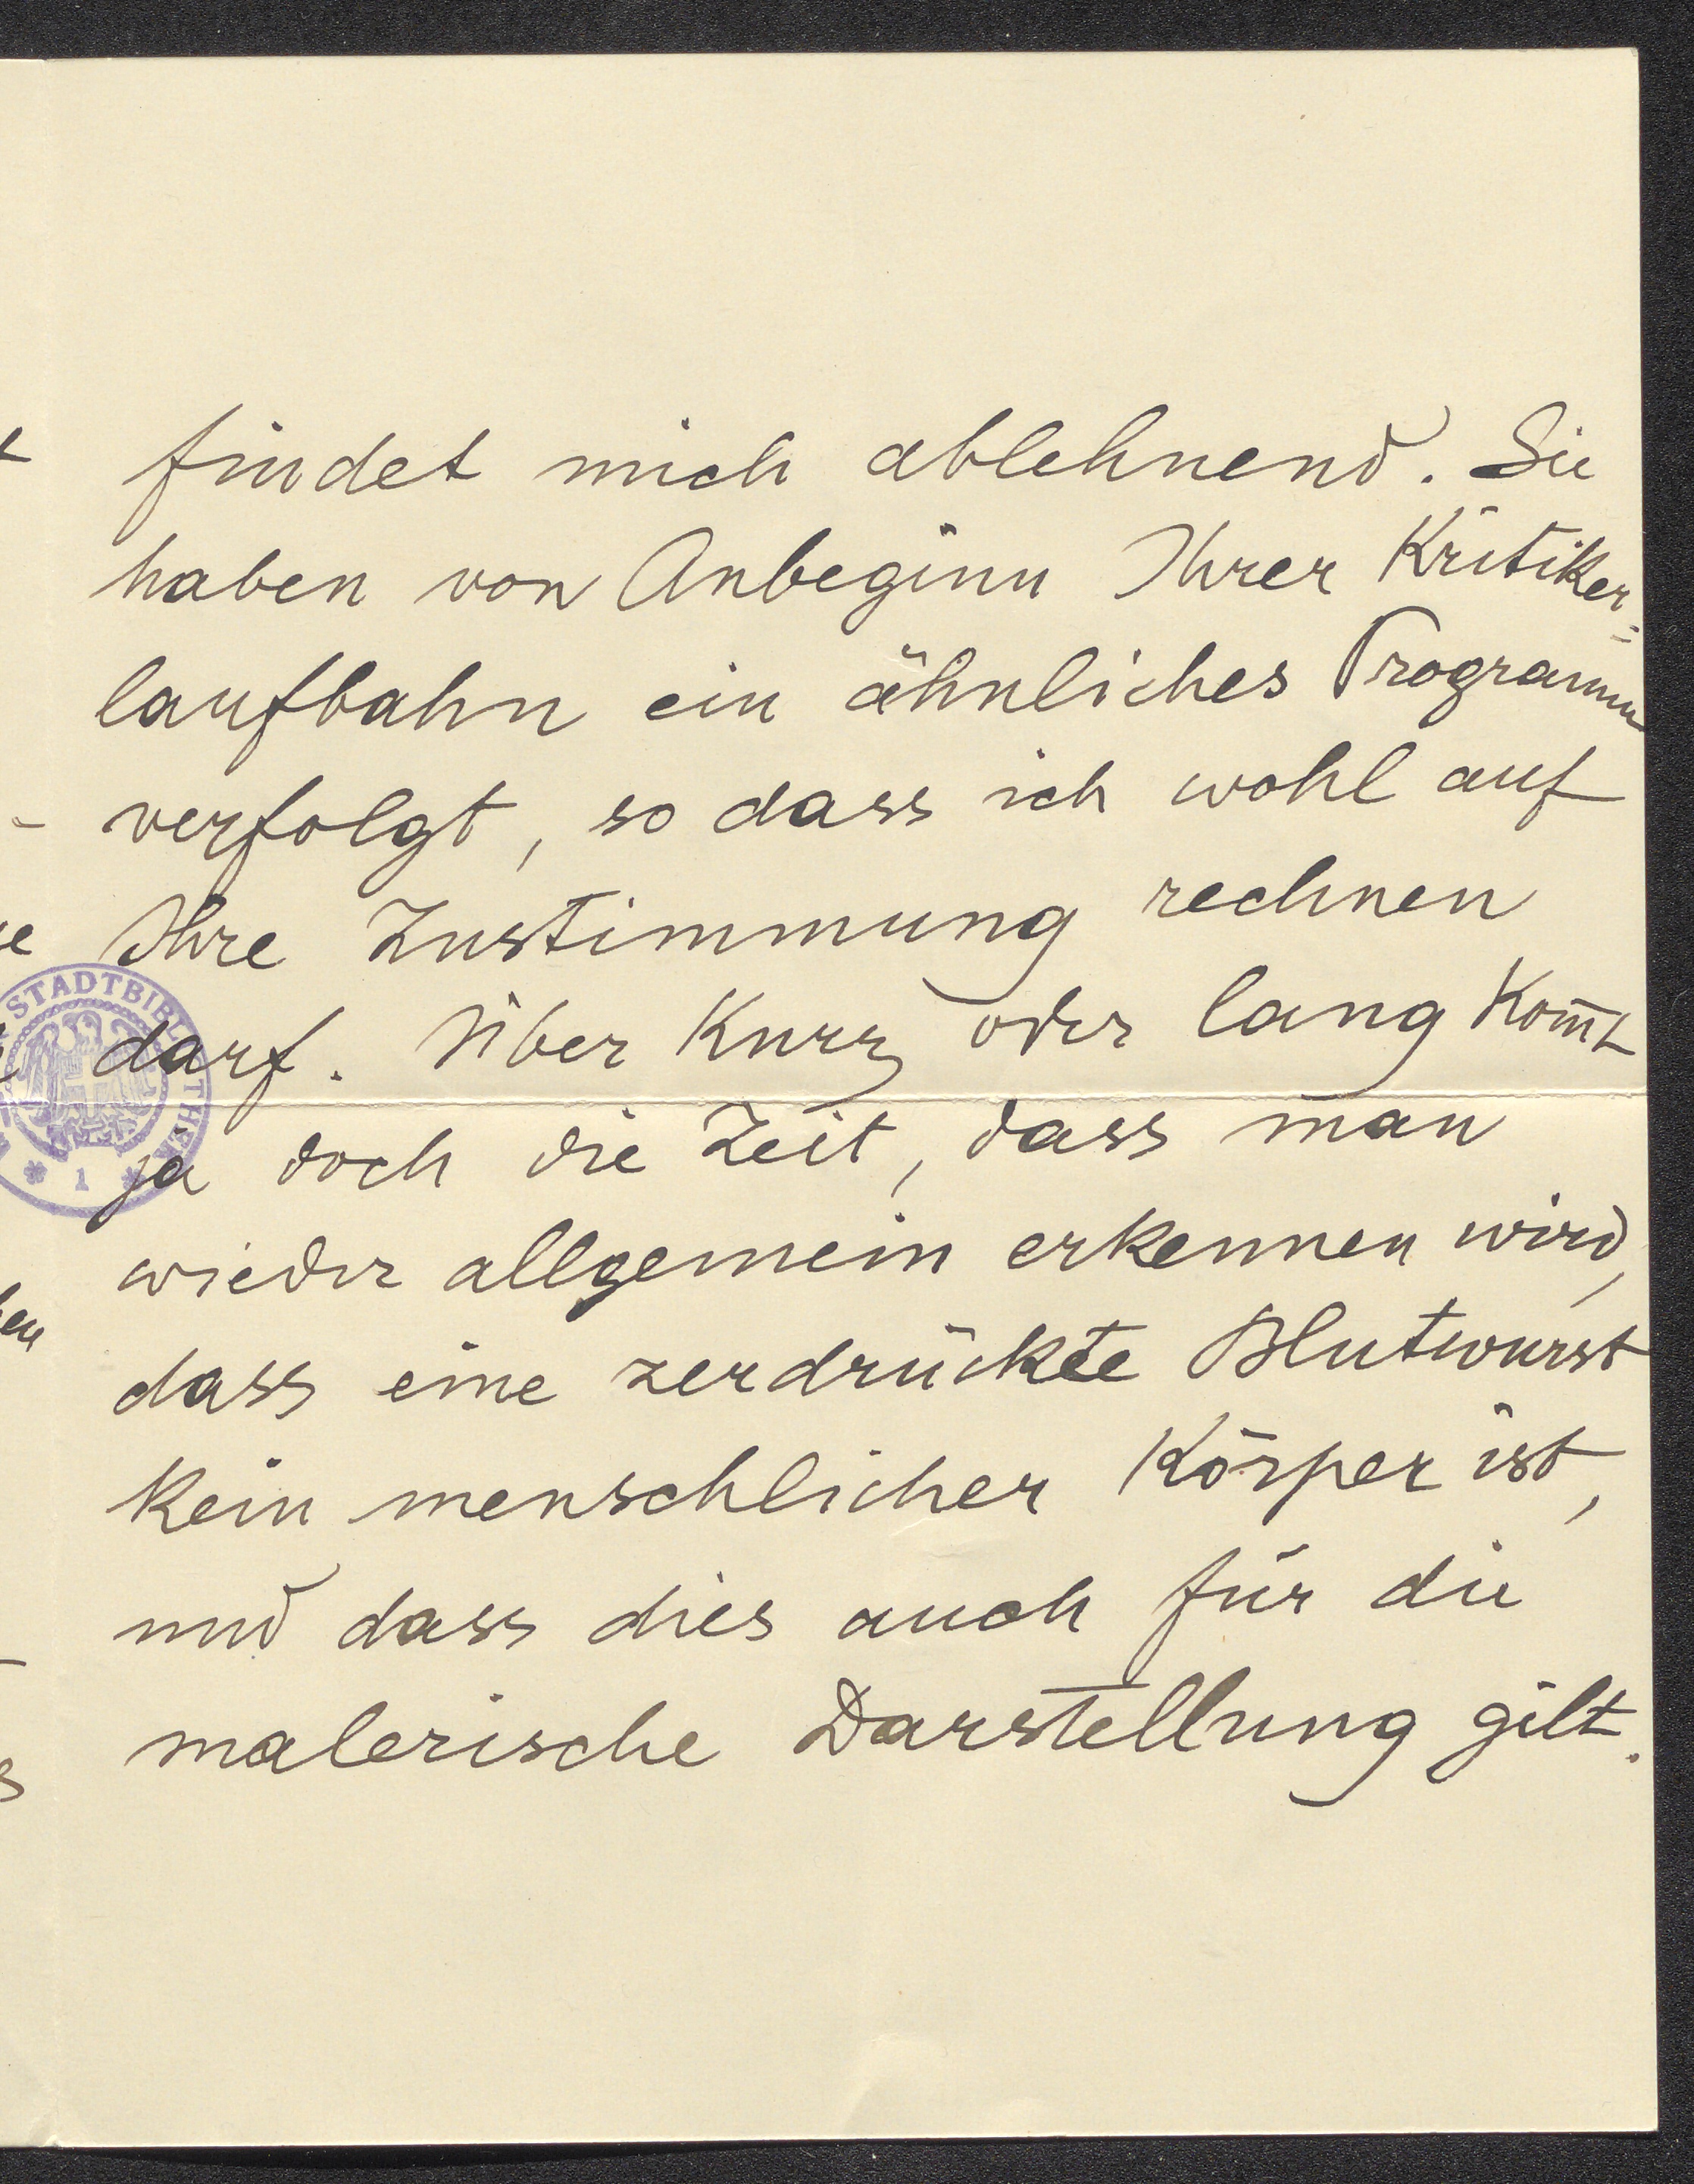 findet mich ablehnend. Sie
haben von Anbeginn Ihrer Kritiker-
laufbahn ein ähnliches Programm
verfolgt, so dass ich wohl auf
Ihre Zustimmung rechnen
darf. Über Kurz oder lang kom̅t
ja doch die Zeit, dass man
wieder allgemein erkennen wird,
dass eine zerdrückte Blutwurst
kein menschlicher Körper ist,
und dass dies auch für die
malerische Darstellung gilt.
STADTBIBLIOTHEK
1